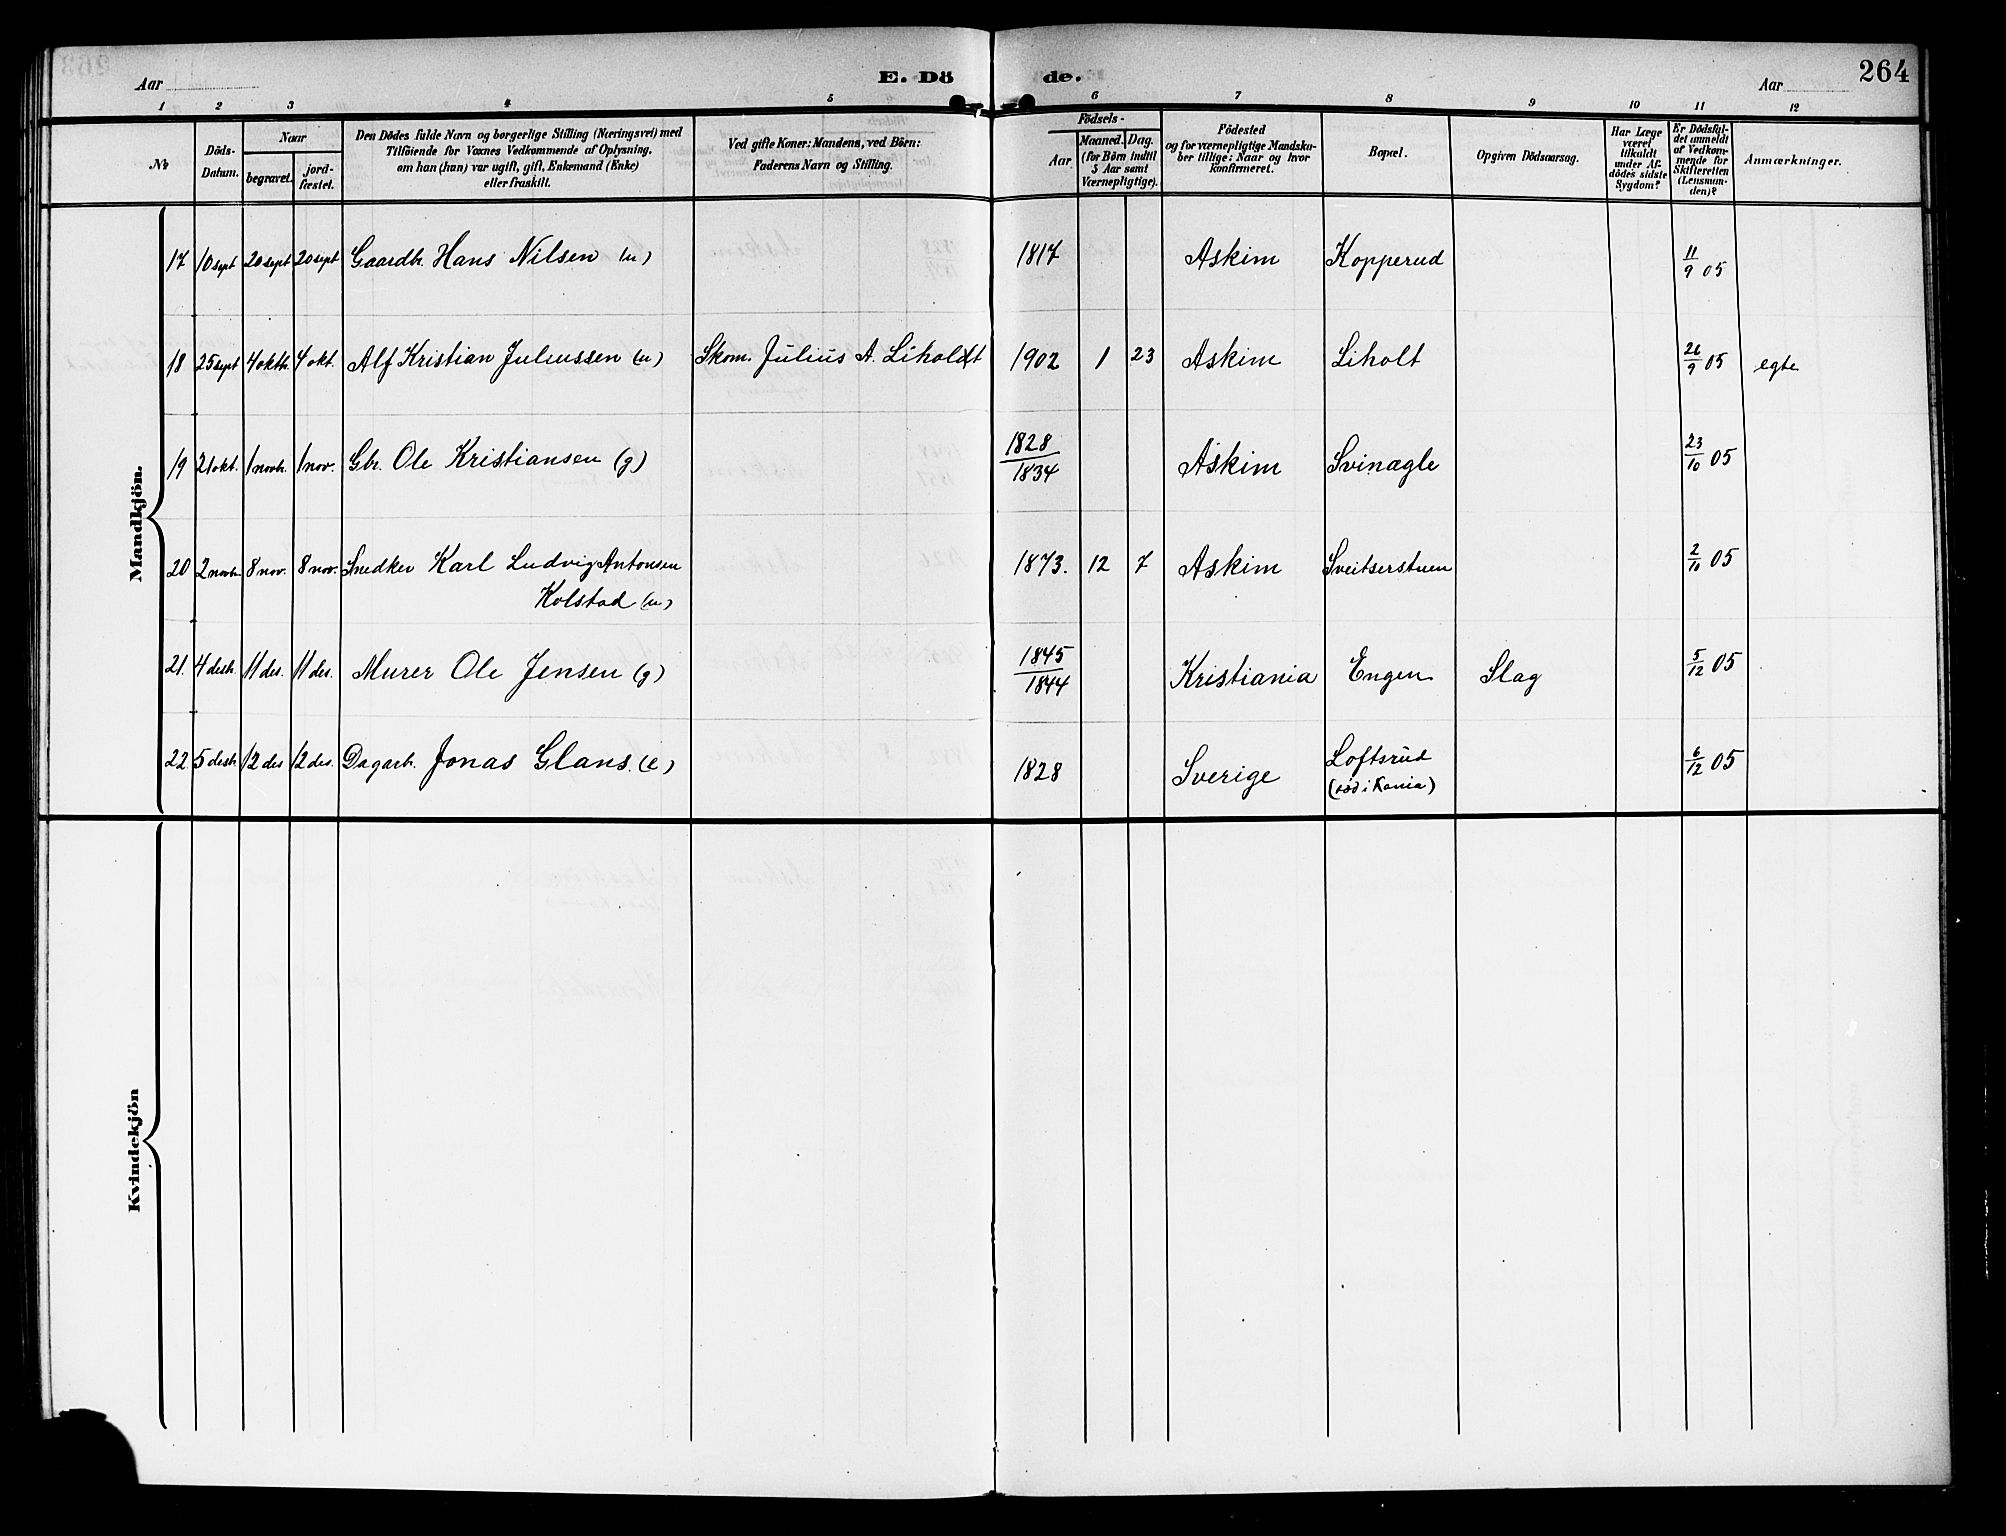 Aar
E. Dö de.
Aar
264
1 2 3 4 5 6 7 8 9 10 11 12
No
Döds-
Datum.
Naar
begravet.
jord-
fæstet.
Den Dödes fulde Navn og borgerlige Stilling (Næringsvei) med
Tilföiende for Voxnes Vedkommende af Oplysning,
om han (hun) var ugift, gift, Enkemand (Enke)
eller fraskilt.
Ved gifte Koner: Mandens, ved Börn:
Faderens Navn og Stilling.
Födsels-
Aar
Maaned. Dag.
(for Börn indtil
5 Aar samt
Værnepligtige).
Födested
og for værnepligtige Mandska-
ber tillige: Naar og hvor
konfirmeret.
Bopæl.
Opgiven Dödsaarsag.
Har Læge
været
tilkaldt
under Af-
dödes sidste
Sygdom?
Er Dödsfal-
det anmeldt
af Vedkom-
mende for
Skifteretten
(Lensman-
den)?
Anmærkninger.
Mandkjön.
17 10 sept 20 sept 20 sept Gaardbr. Hans Nilsen (u) 1817 Askim Kopperud 11/9 05
18 25 sept 4 oktb. 4 okt. Alf Kristian Juliussen (u) Skom. Julius A. Liholdt 1902 1 23 Askim Liholt 26/9 05 egte
19 21 okt. 1 novb. 1 nov. Gbr. Ole Kristiansen (g) 1828/1834 Askim Svinagle 23/10 05
20 2 novb. 8 nov. 8 nov. Snedker Karl Ludvig Antonsen 1873. 12 7 Askim Sveitserstuen 2/10 05
Kolstad (u)
21. 4 desb. 11 des. 11 des. Murer Ole Jensen (g) 1845/1844 Kristiania Engen Slag 5/12 05
22 5 desb 12 des 12 des. Dagarb. Jonas Glans. (e) 1828 Sverige Loftsrud 6/12 05
(död i Kania)
Kvindekjön